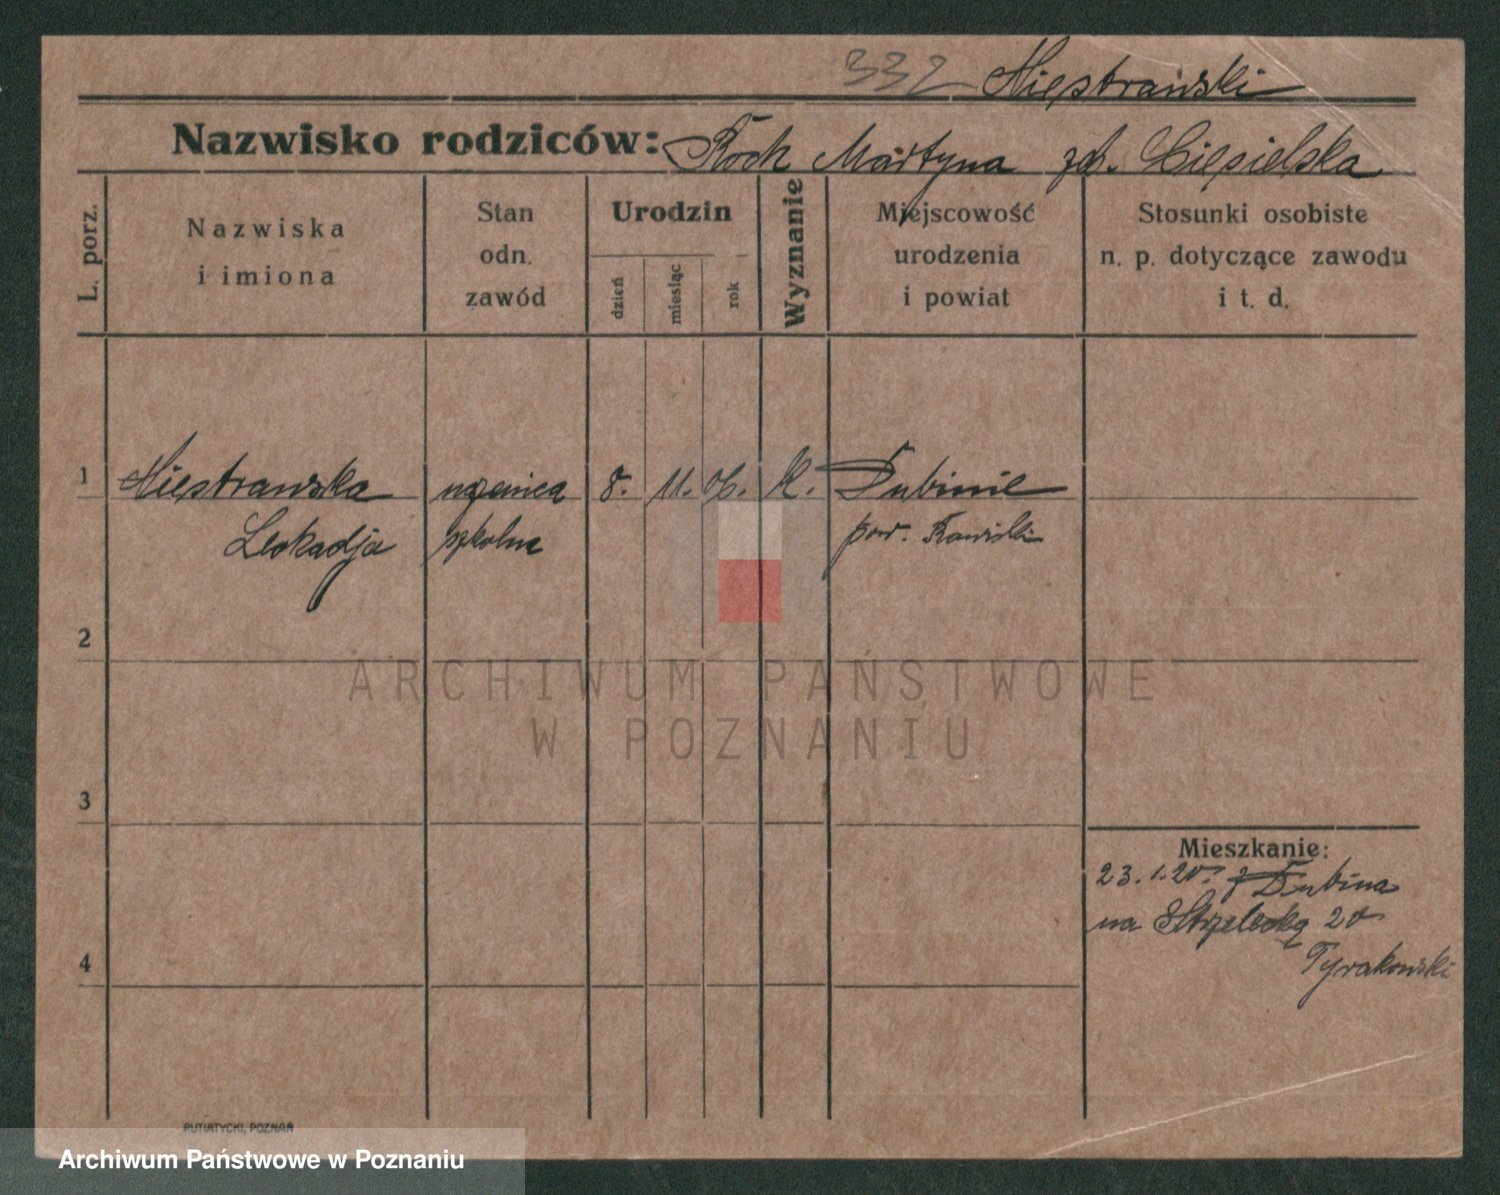 332 Niestrawski
Nazwisko rodziców: Roch Martyna zd. Ciesielska
L. porz.
Nazwiska
i imiona
Stan
odn.
zawód
Urodzin
dzień
miesiąc
rok
Wyznanie
Miejscowość
urodzenia
i powiat
Stosunki osobiste
n. p. dotyczące zawodu
i t. d.
1 Niestrawska uczenica 8. 11. 06. K. Dubinie
Leokadja szkolna pow. Rawicki
2
3
4
Mieszkanie:
23.1.20. z Dubina
na Strzelecką 20
Tyrakowski
PUTIATYCKI, POZNAŃ
ARCHIWUM PAŃSTWOWE
W POZNANIU
Archiwum Państwowe w Poznaniu